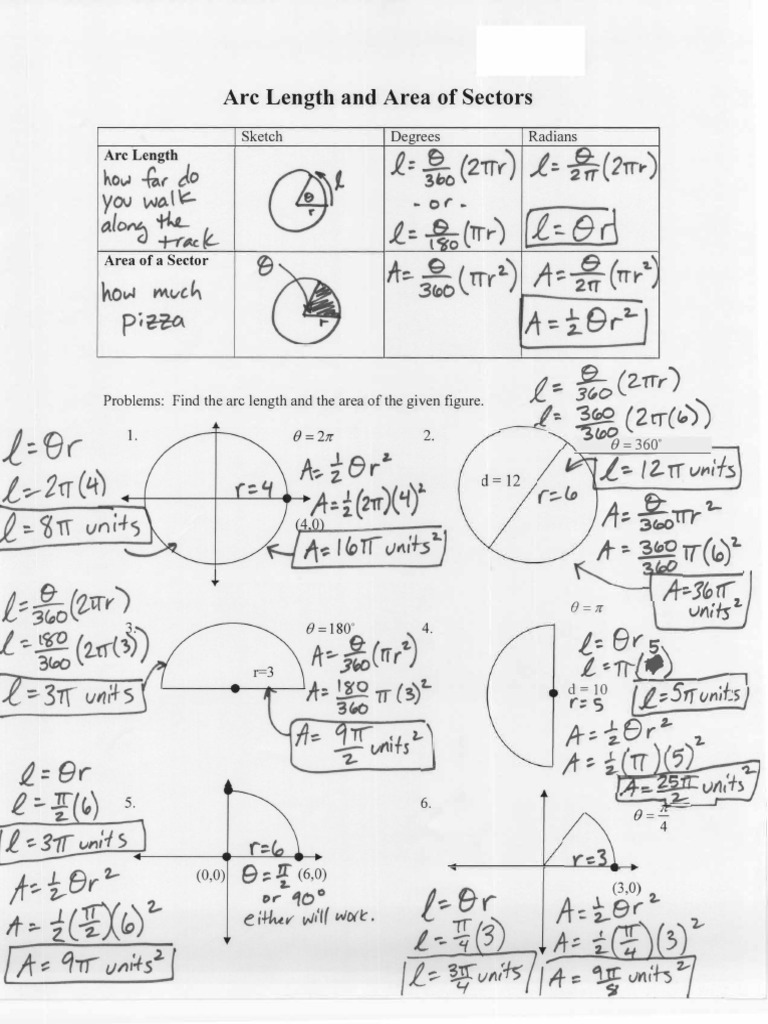 Arc Length and Area of Sectors
Sketch Degrees Radians
Arc Length
how far do
you walk
along the
track
θ r l
l = θ/360 (2πr)
- or -
l = θ/180 (πr)
l = θ/2π (2πr)
l = θr
Area of a Sector
how much
pizza
θ
r
A = θ/360 (πr²)
A = θ/2π (πr²)
A = 1/2 θr²
Problems: Find the arc length and the area of the given figure.
1.
l = θr
l = 2π(4)
l = 8π units
r=4
(4,0)
θ = 2π
A = 1/2 θr²
A = 1/2 (2π)(4)²
A = 16π units²
2.
d = 12
r=6
l = θ/360 (2πr)
l = 360/360 (2π(6))
θ = 360°
l = 12π units
A = θ/360 πr²
A = 360/360 π(6)²
A = 36π
units²
3.
l = θ/360 (2πr)
l = 180/360 (2π(3))
l = 3π units
r=3
θ = 180°
A = θ/360 (πr²)
A = 180/360 π(3)²
A = 9π/2 units²
4.
θ = π
l = θr
l = π(5)
d = 10
r = 5
l = 5π units
A = 1/2 θr²
A = 1/2 (π)(5)²
A = 25π/2 units²
5.
l = θr
l = π/2 (6)
l = 3π units
A = 1/2 θr²
A = 1/2 (π/2)(6)²
A = 9π units²
r=6
(0,0)
(6,0)
θ = π/2
or 90°
either will work.
6.
θ = π/4
r=3
(3,0)
l = θr
l = π/4 (3)
l = 3π/4 units
A = 1/2 θr²
A = 1/2 (π/4)(3)²
A = 9π/8 units²